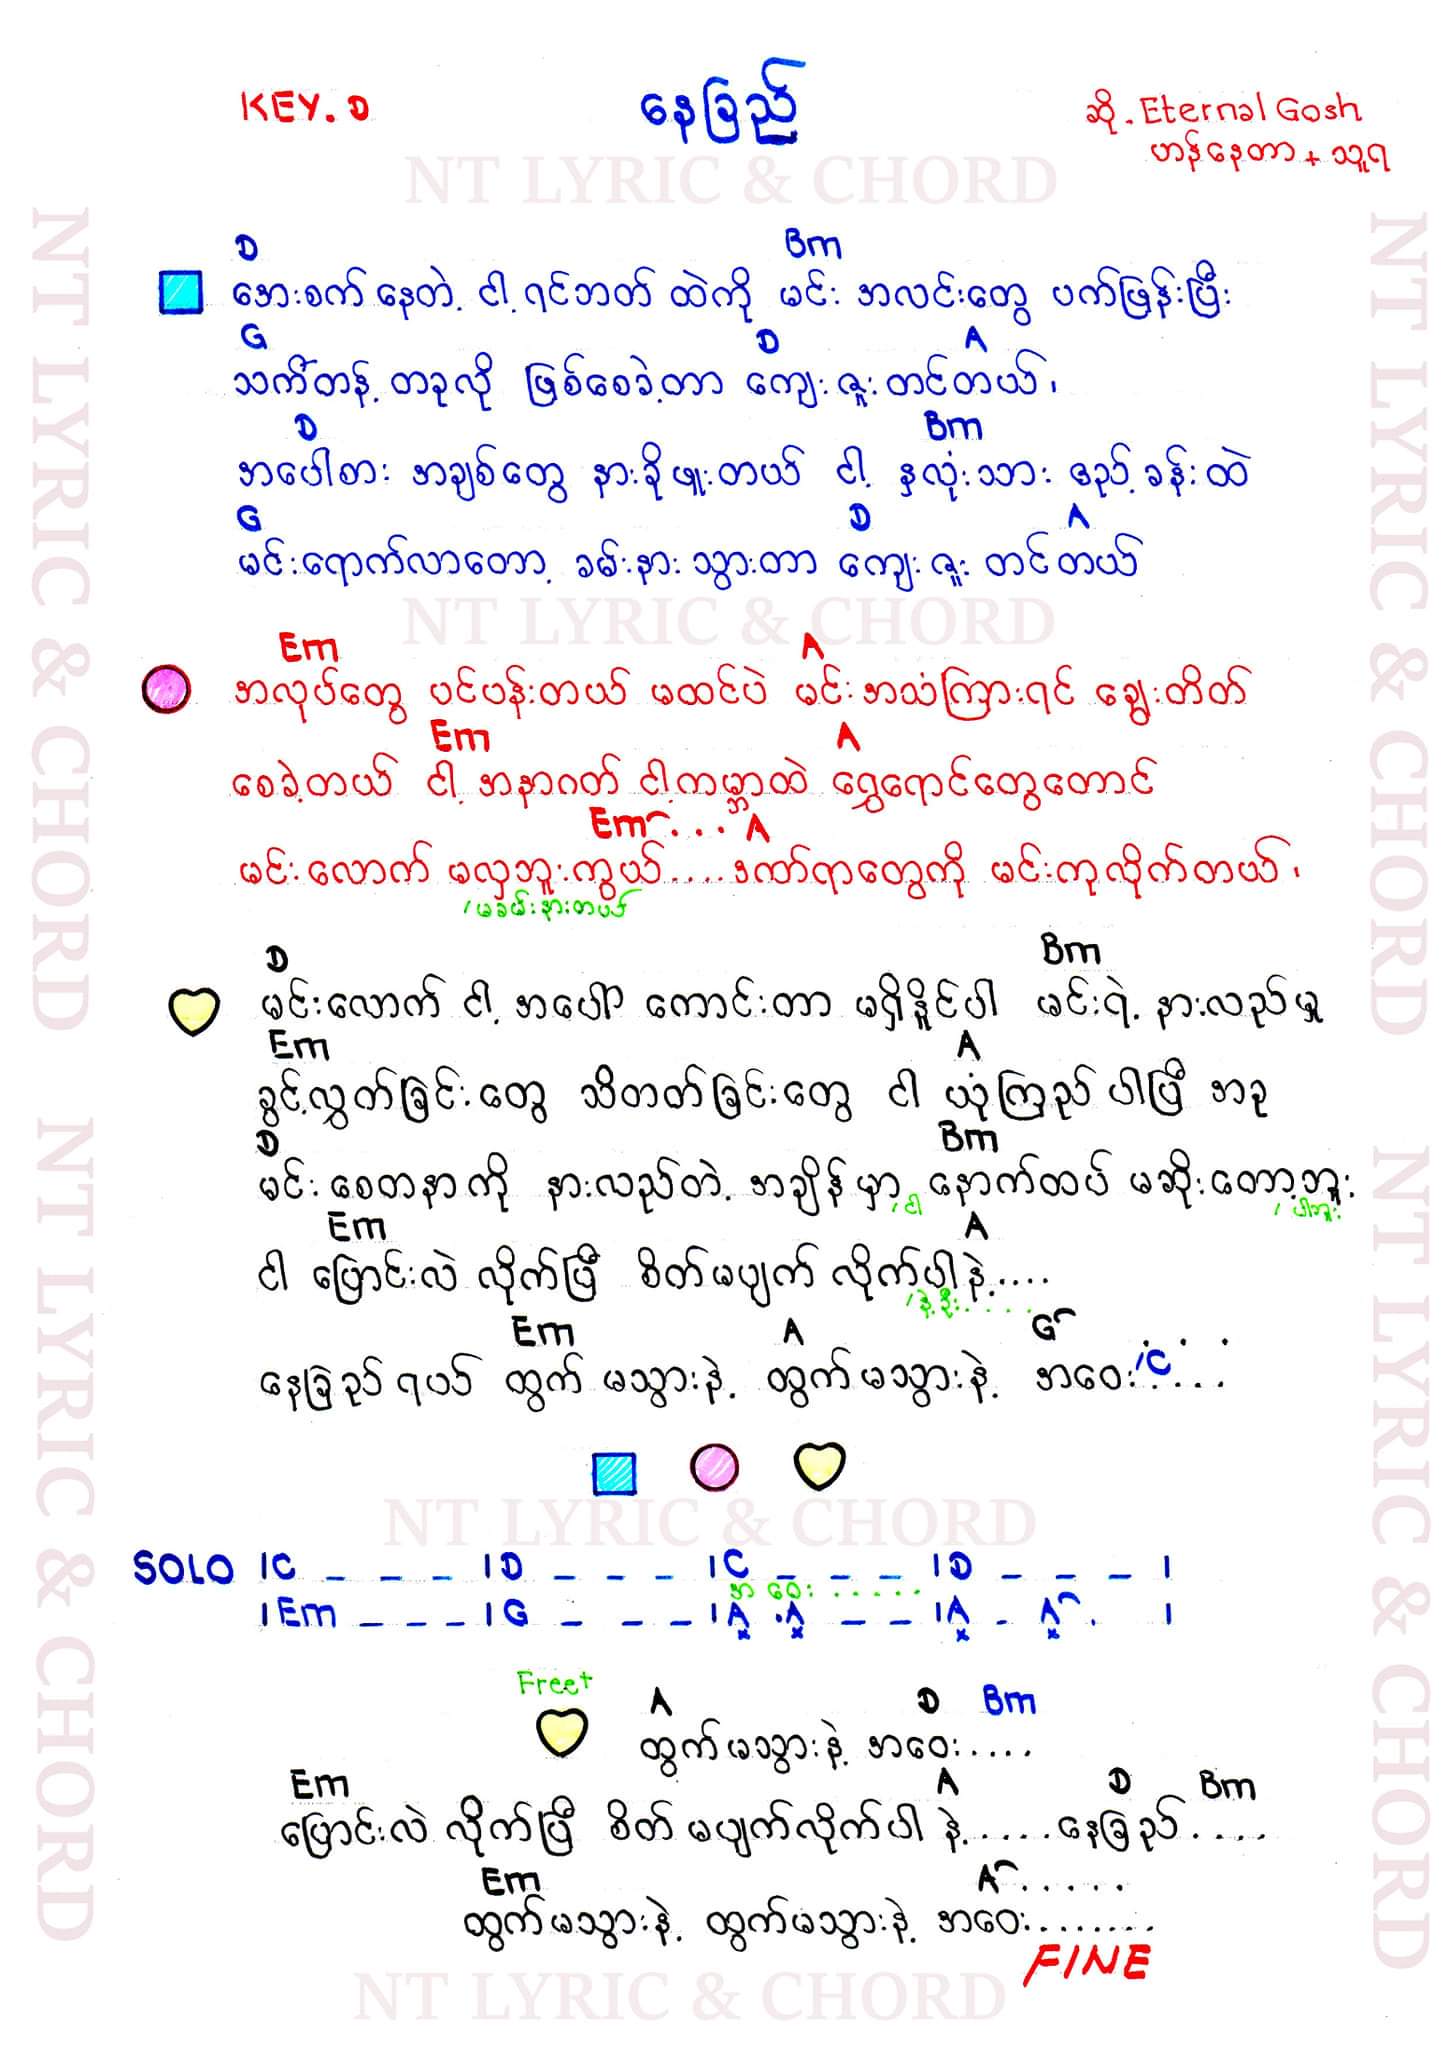 KEY. D
နေခြည်
ဆို. Eternal Gosh
ဟန်နေတာ + သူရ
NT LYRIC & CHORD
D Bm
အေးစက်နေတဲ့ ငါ့ ရင်ဘတ် ထဲကို မင်း အလင်းတွေ ပက်ဖြန်းပြီး
G D A
သက်တန့် တခုလို ဖြစ်စေခဲ့တာ ကျေးဇူးတင်တယ်၊
D Bm
အပေါစား အချစ်တွေ နားခိုဖူးတယ် ငါ့ နှလုံးသား ဧည့်ခန်းထဲ
G D A
မင်းရောက်လာတော့ ခမ်းနားသွားတာ ကျေးဇူး တင်တယ်
NT LYRIC & CHORD
Em A
အလုပ်တွေ ပင်ပန်းတယ် မထင်ပဲ မင်းအသံကြားရင် ချွေးတိတ်
Em A
စေခဲ့တယ် ငါ့ အနာဂတ် ငါ့ကမ္ဘာထဲ ရွှေရောင်တွေတောင်
Em .... A
မင်းလောက် မလှဘူးကွယ်....ဒဏ်ရာတွေကို မင်းကုလိုက်တယ်၊
/မခမ်းနားတယ်
D Bm
မင်းလောက် ငါ့ အပေါ် ကောင်းတာ မရှိနိုင်ပါ မင်းရဲ့ နားလည်မှု
Em A
ခွင့်လွှတ်ခြင်းတွေ သိတတ်ခြင်းတွေ ငါ ယုံကြည်ပါပြီ အခု
D Bm
မင်းစေတနာကို နားလည်တဲ့ အချိန်မှာ နောက်ထပ် မဆိုးတော့ဘူး
/ငါ /ပါဘူး
Em A
ငါ ပြောင်းလဲ လိုက်ပြီ စိတ်မပျက် လိုက်ပါနဲ့....
/နဲ့ဦး.....
Em A G ...
နေခြည်ရယ် ထွက်မသွားနဲ့ ထွက်မသွားနဲ့ အဝေး/C....
NT LYRIC & CHORD
SOLO |C _ _ _ |D _ _ _ |C _ _ _ |D _ _ _ |
အဝေး......
|Em _ _ _ |G _ _ _ |A .A _ _ |A - A . |
Free+
A D Bm
ထွက်မသွားနဲ့ အဝေး....
Em A D Bm
ပြောင်းလဲ လိုက်ပြီ စိတ်မပျက်လိုက်ပါ နဲ့.....နေခြည်....
Em A.....
ထွက်မသွားနဲ့ ထွက်မသွားနဲ့ အဝေး........
FINE
NT LYRIC & CHORD
NT LYRIC & CHORD NT LYRIC & CHORD
NT LYRIC & CHORD NT LYRIC & CHORD